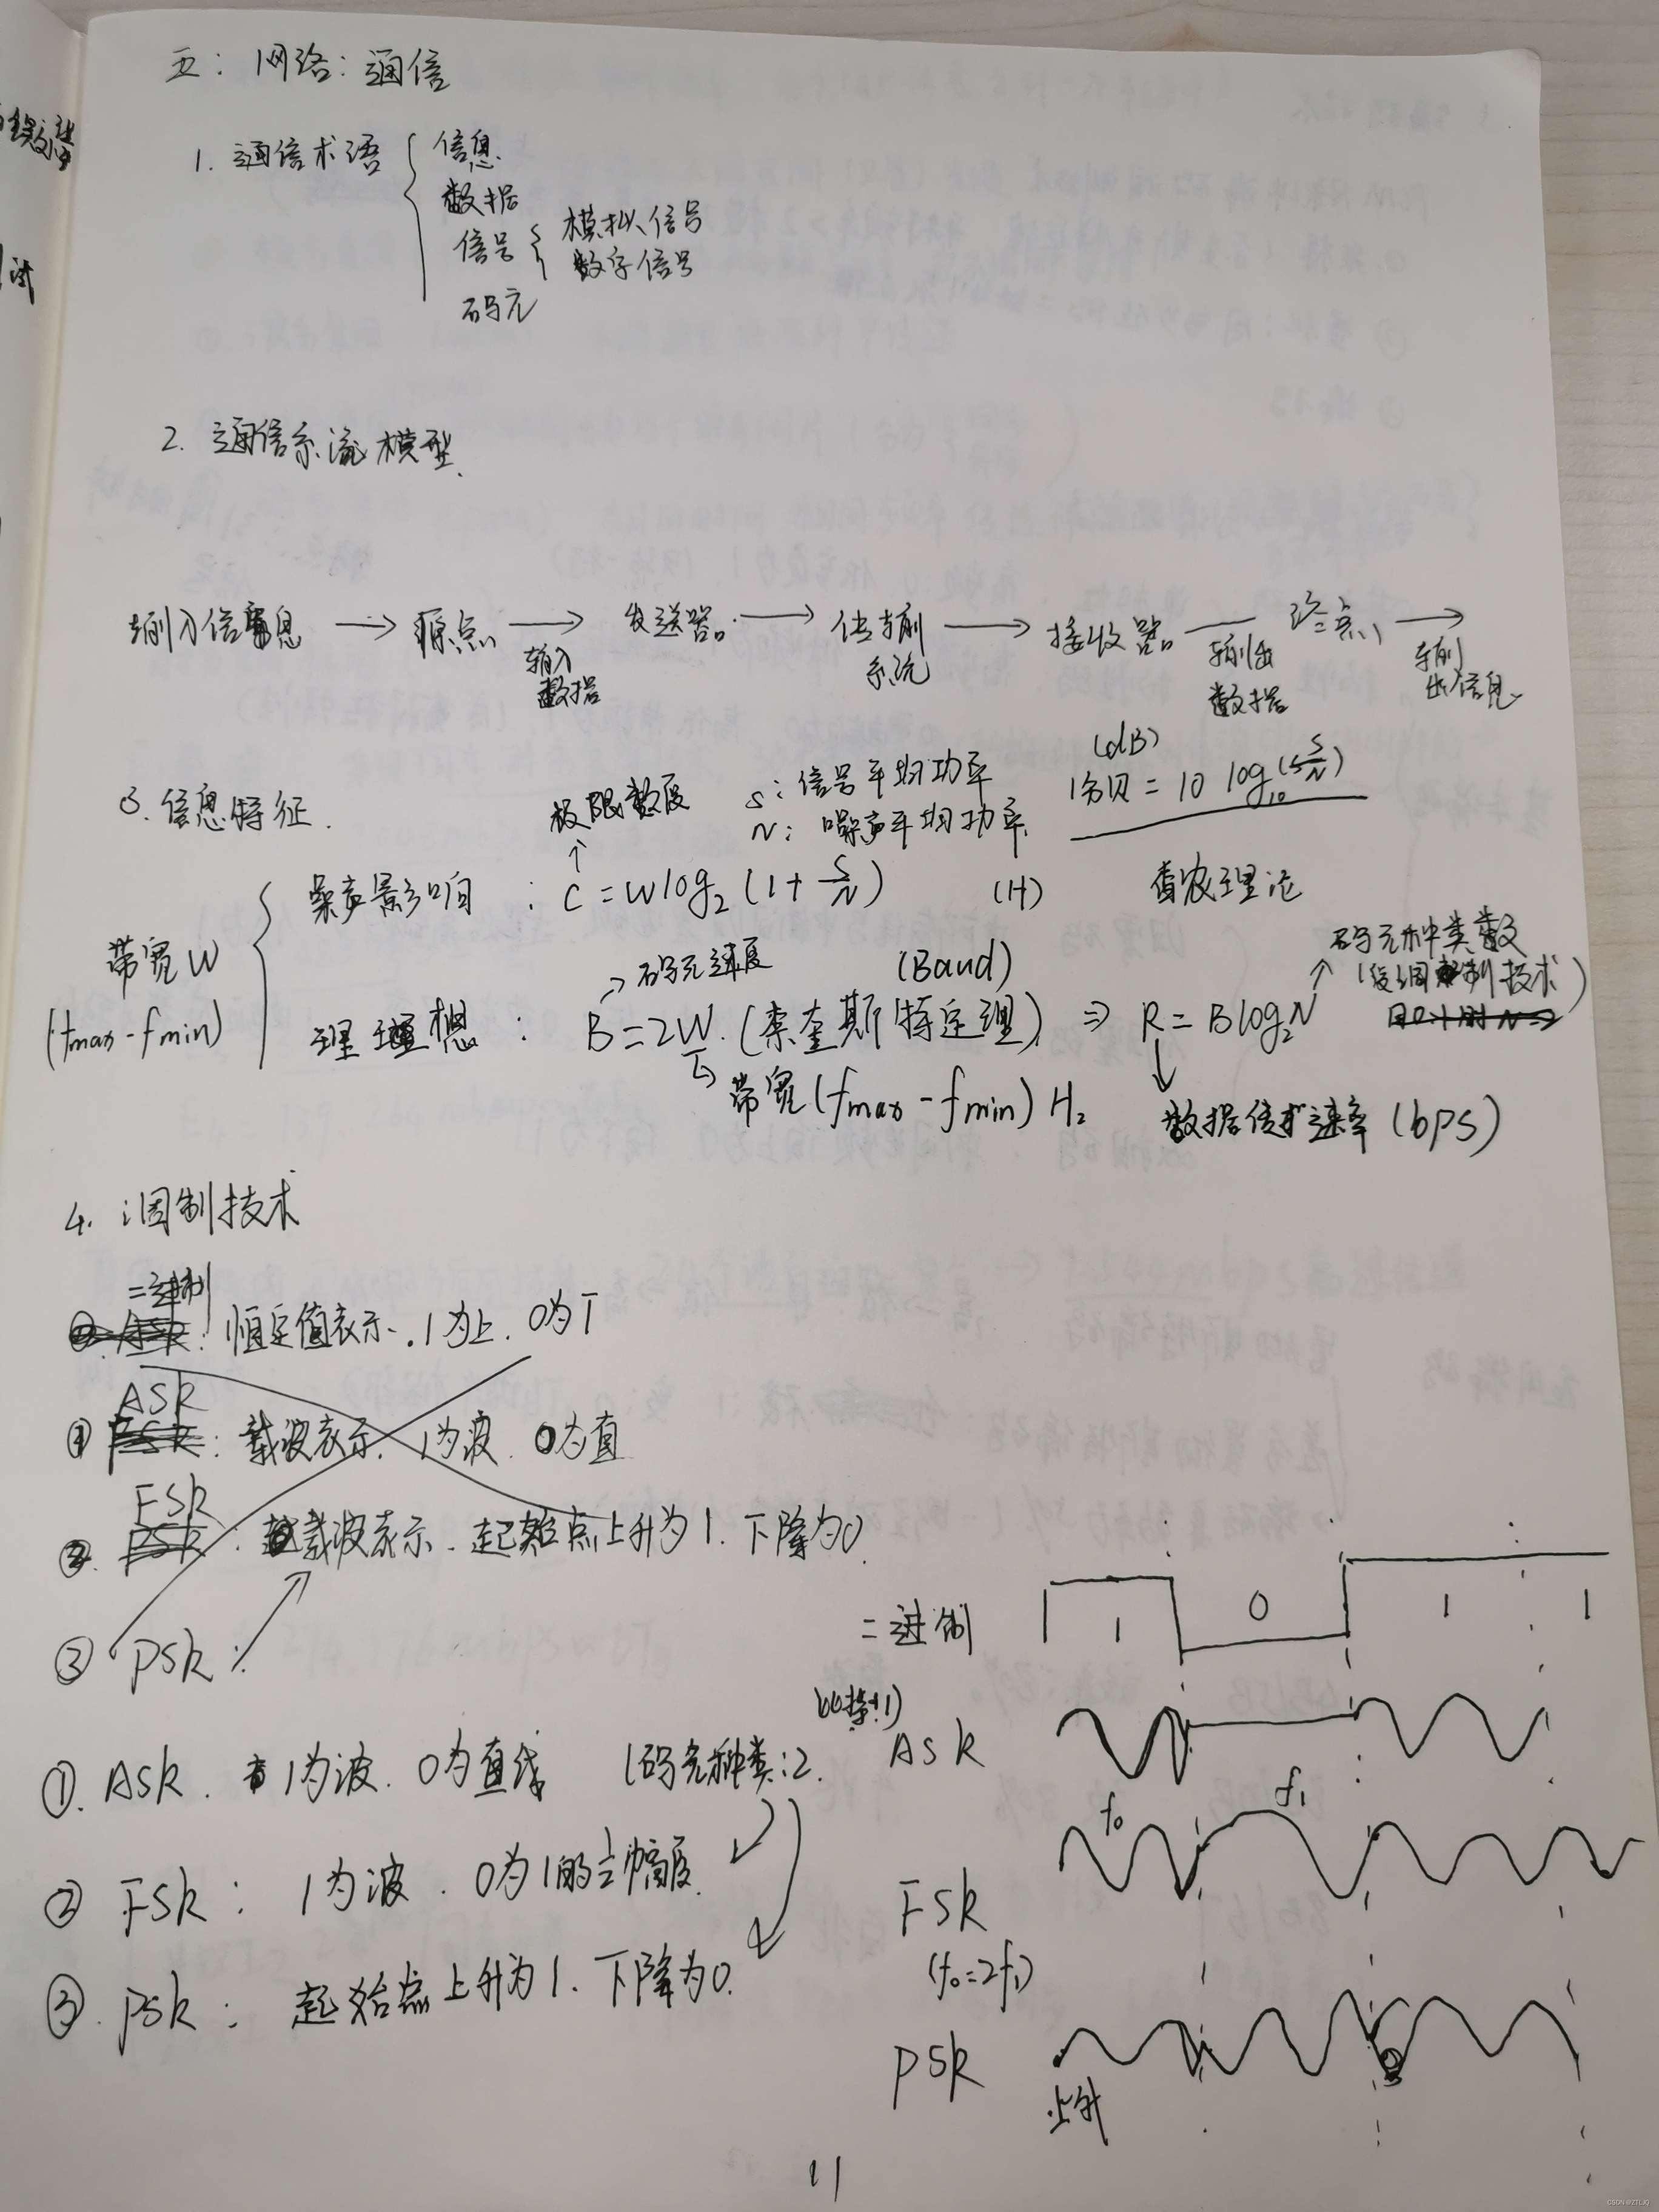 五：网络：通信
1. 通信术语 { 信息
数据
信号 { 模拟信号
数字信号
码元
2. 通信系统模型.
输入信息 → 源点 → 发送器 → 传输系统 → 接收器 — 终点 →
输入数据
输出数据
输出信息
(dB)
3. 信息特征.
极限数度
S：信号平均功率
N：噪声平均功率.
分贝 = 10 log₁₀(S/N)
带宽W
(fmax - fmin)
噪声影响：C = W log₂ (1 + S/N) (H) 香农理论
码元速度 (Baud)
码元种类数
理想：B = 2W (奈奎斯特定理) ⇒ R = B log₂N
带宽 (fmax - fmin) Hz
数据传求速率 (bps)
4. 调制技术
二进制
恒定值表示. 1为上. 0为下
ASK
① 载波表示. 1为波. 0为直
FSK
②. 载波表示. 起始点上升为1. 下降为0.
③ PSK：
二进制 1 0 1 1
①. ASK. 1为波. 0为直线 (码元种类:2.
ASK
② FSK： 1为波. 0为1的½幅度.
f₀ f₁
FSK
(f₀=2f₁)
③. PSK： 起始点上升为1. 下降为0.
PSK
上升
11
CSDN @ZTLJQ